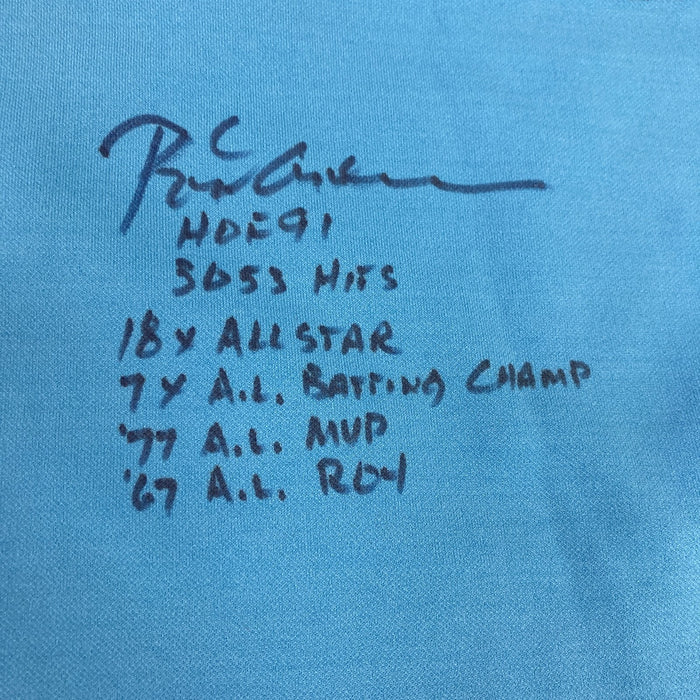 Rod Carew
HOF 91
3053 HITS
18 X ALL STAR
7 X A.L. BATTING CHAMP
'77 A.L. MVP
'67 A.L. ROY